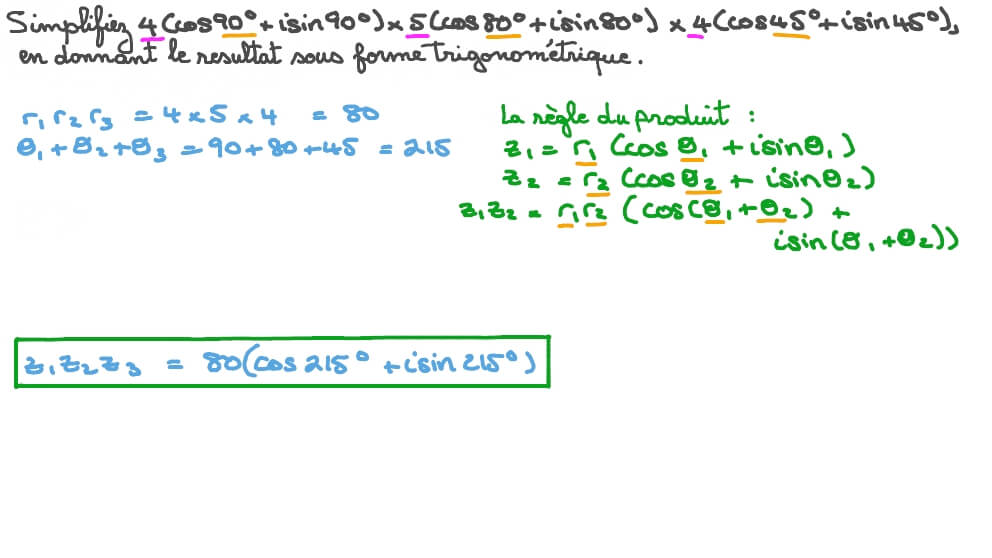 Simplifiez 4(cos90°+isin90°)×5(cos80°+isin80°)×4(cos45°+isin45°),
en donnant le resultat sous forme trigonométrique.
r₁r₂r₃ = 4×5×4 = 80
θ₁+θ₂+θ₃ = 90+80+45 = 215
La règle du produit :
z₁ = r₁(cosθ₁+isinθ₁)
z₂ = r₂(cosθ₂+isinθ₂)
z₁z₂ = r₁r₂(cos(θ₁+θ₂)+
isin(θ₁+θ₂))
z₁z₂z₃ = 80(cos215°+isin215°)